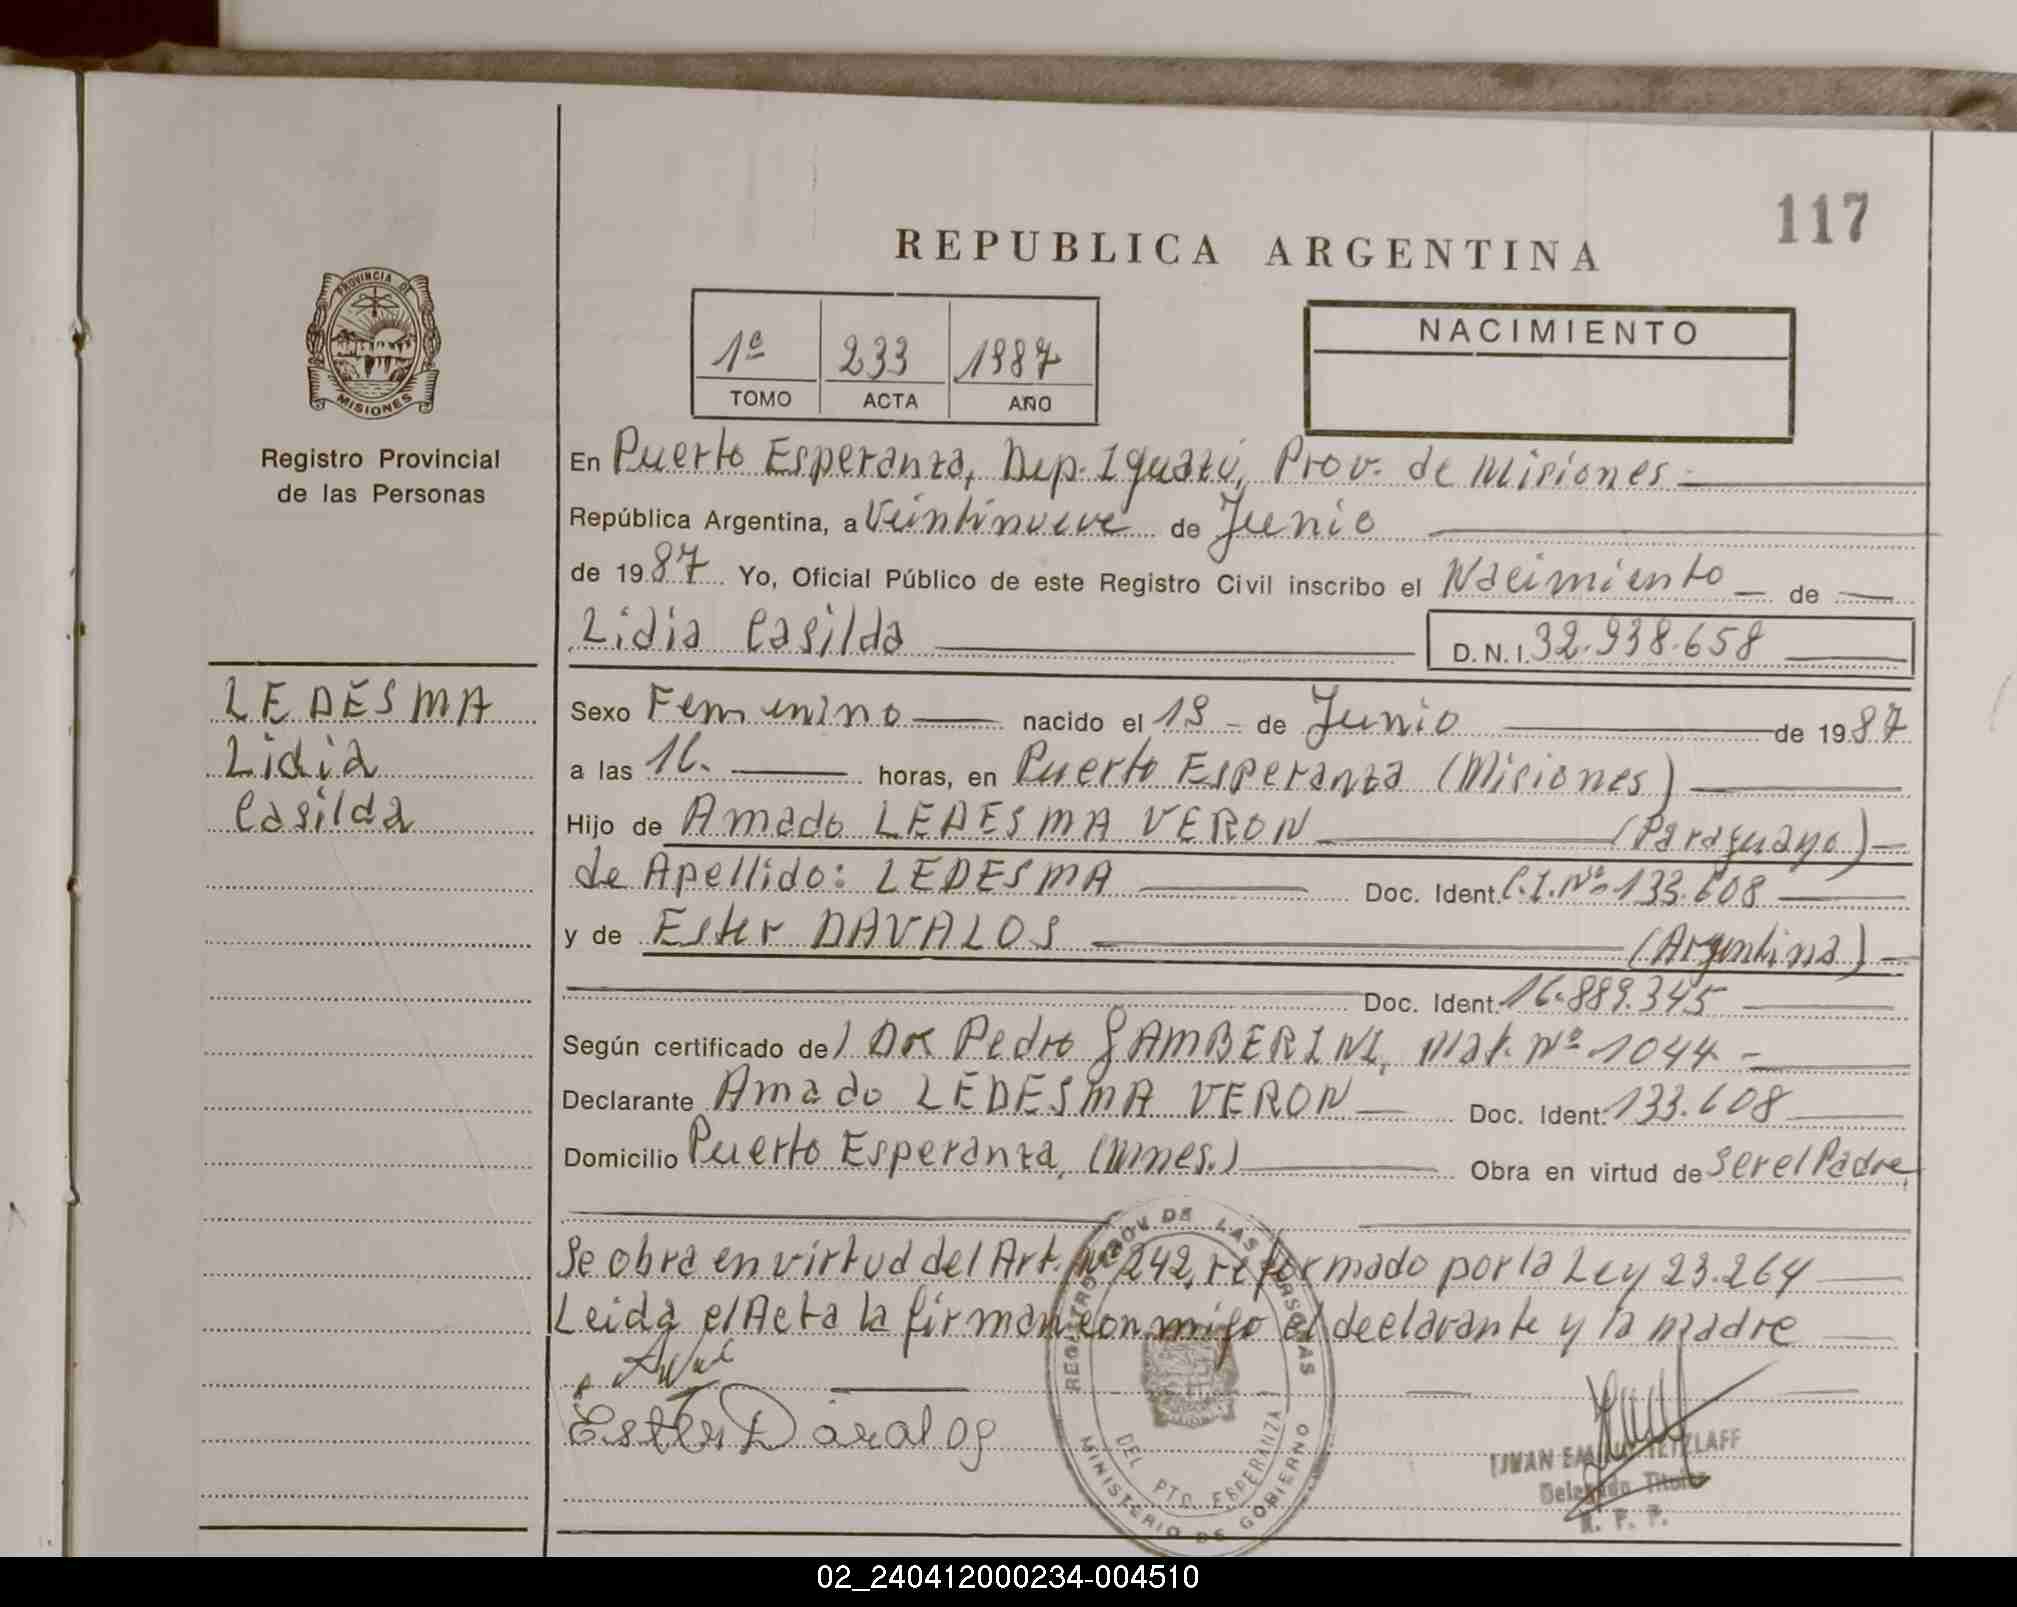 117
REPUBLICA ARGENTINA
PROVINCIA DE MISIONES
Registro Provincial
de las Personas
1º 233 1987
TOMO ACTA AÑO
NACIMIENTO
En Puerto Esperanza, Dep. Iguazú, Prov. de Misiones
República Argentina, a Veintinueve de Junio
de 1987 Yo, Oficial Público de este Registro Civil inscribo el Nacimiento de
Lidia Casilda D.N.I. 32.938.658
LEDESMA
Lidia
Casilda
Sexo Femenino nacido el 19 de Junio de 1987
a las 16. horas, en Puerto Esperanza (Misiones)
Hijo de Amado LEDESMA VERON (Paraguayo)
de Apellido: LEDESMA Doc. Ident. C.I. Nº 133.608
y de Ester DAVALOS (Argentina)
Doc. Ident. 16.889.345
Según certificado del Dr Pedro GAMBERINI, Mat. Nº 1044
Declarante Amado LEDESMA VERON Doc. Ident. 133.608
Domicilio Puerto Esperanza, (Mnes.) Obra en virtud de ser el Padre
Se obra en virtud del Art. Nº 242, reformado por la Ley 23.264
Leida el Acta la firman conmigo el declarante y la madre
Ester Davalos
REGISTRO PROV DE LAS PERSONAS
DEL PTO. ESPERANZA
MINISTERIO DE GOBIERNO
TETZLAFF
Delegado Titular
R. P. P.
02_240412000234-004510